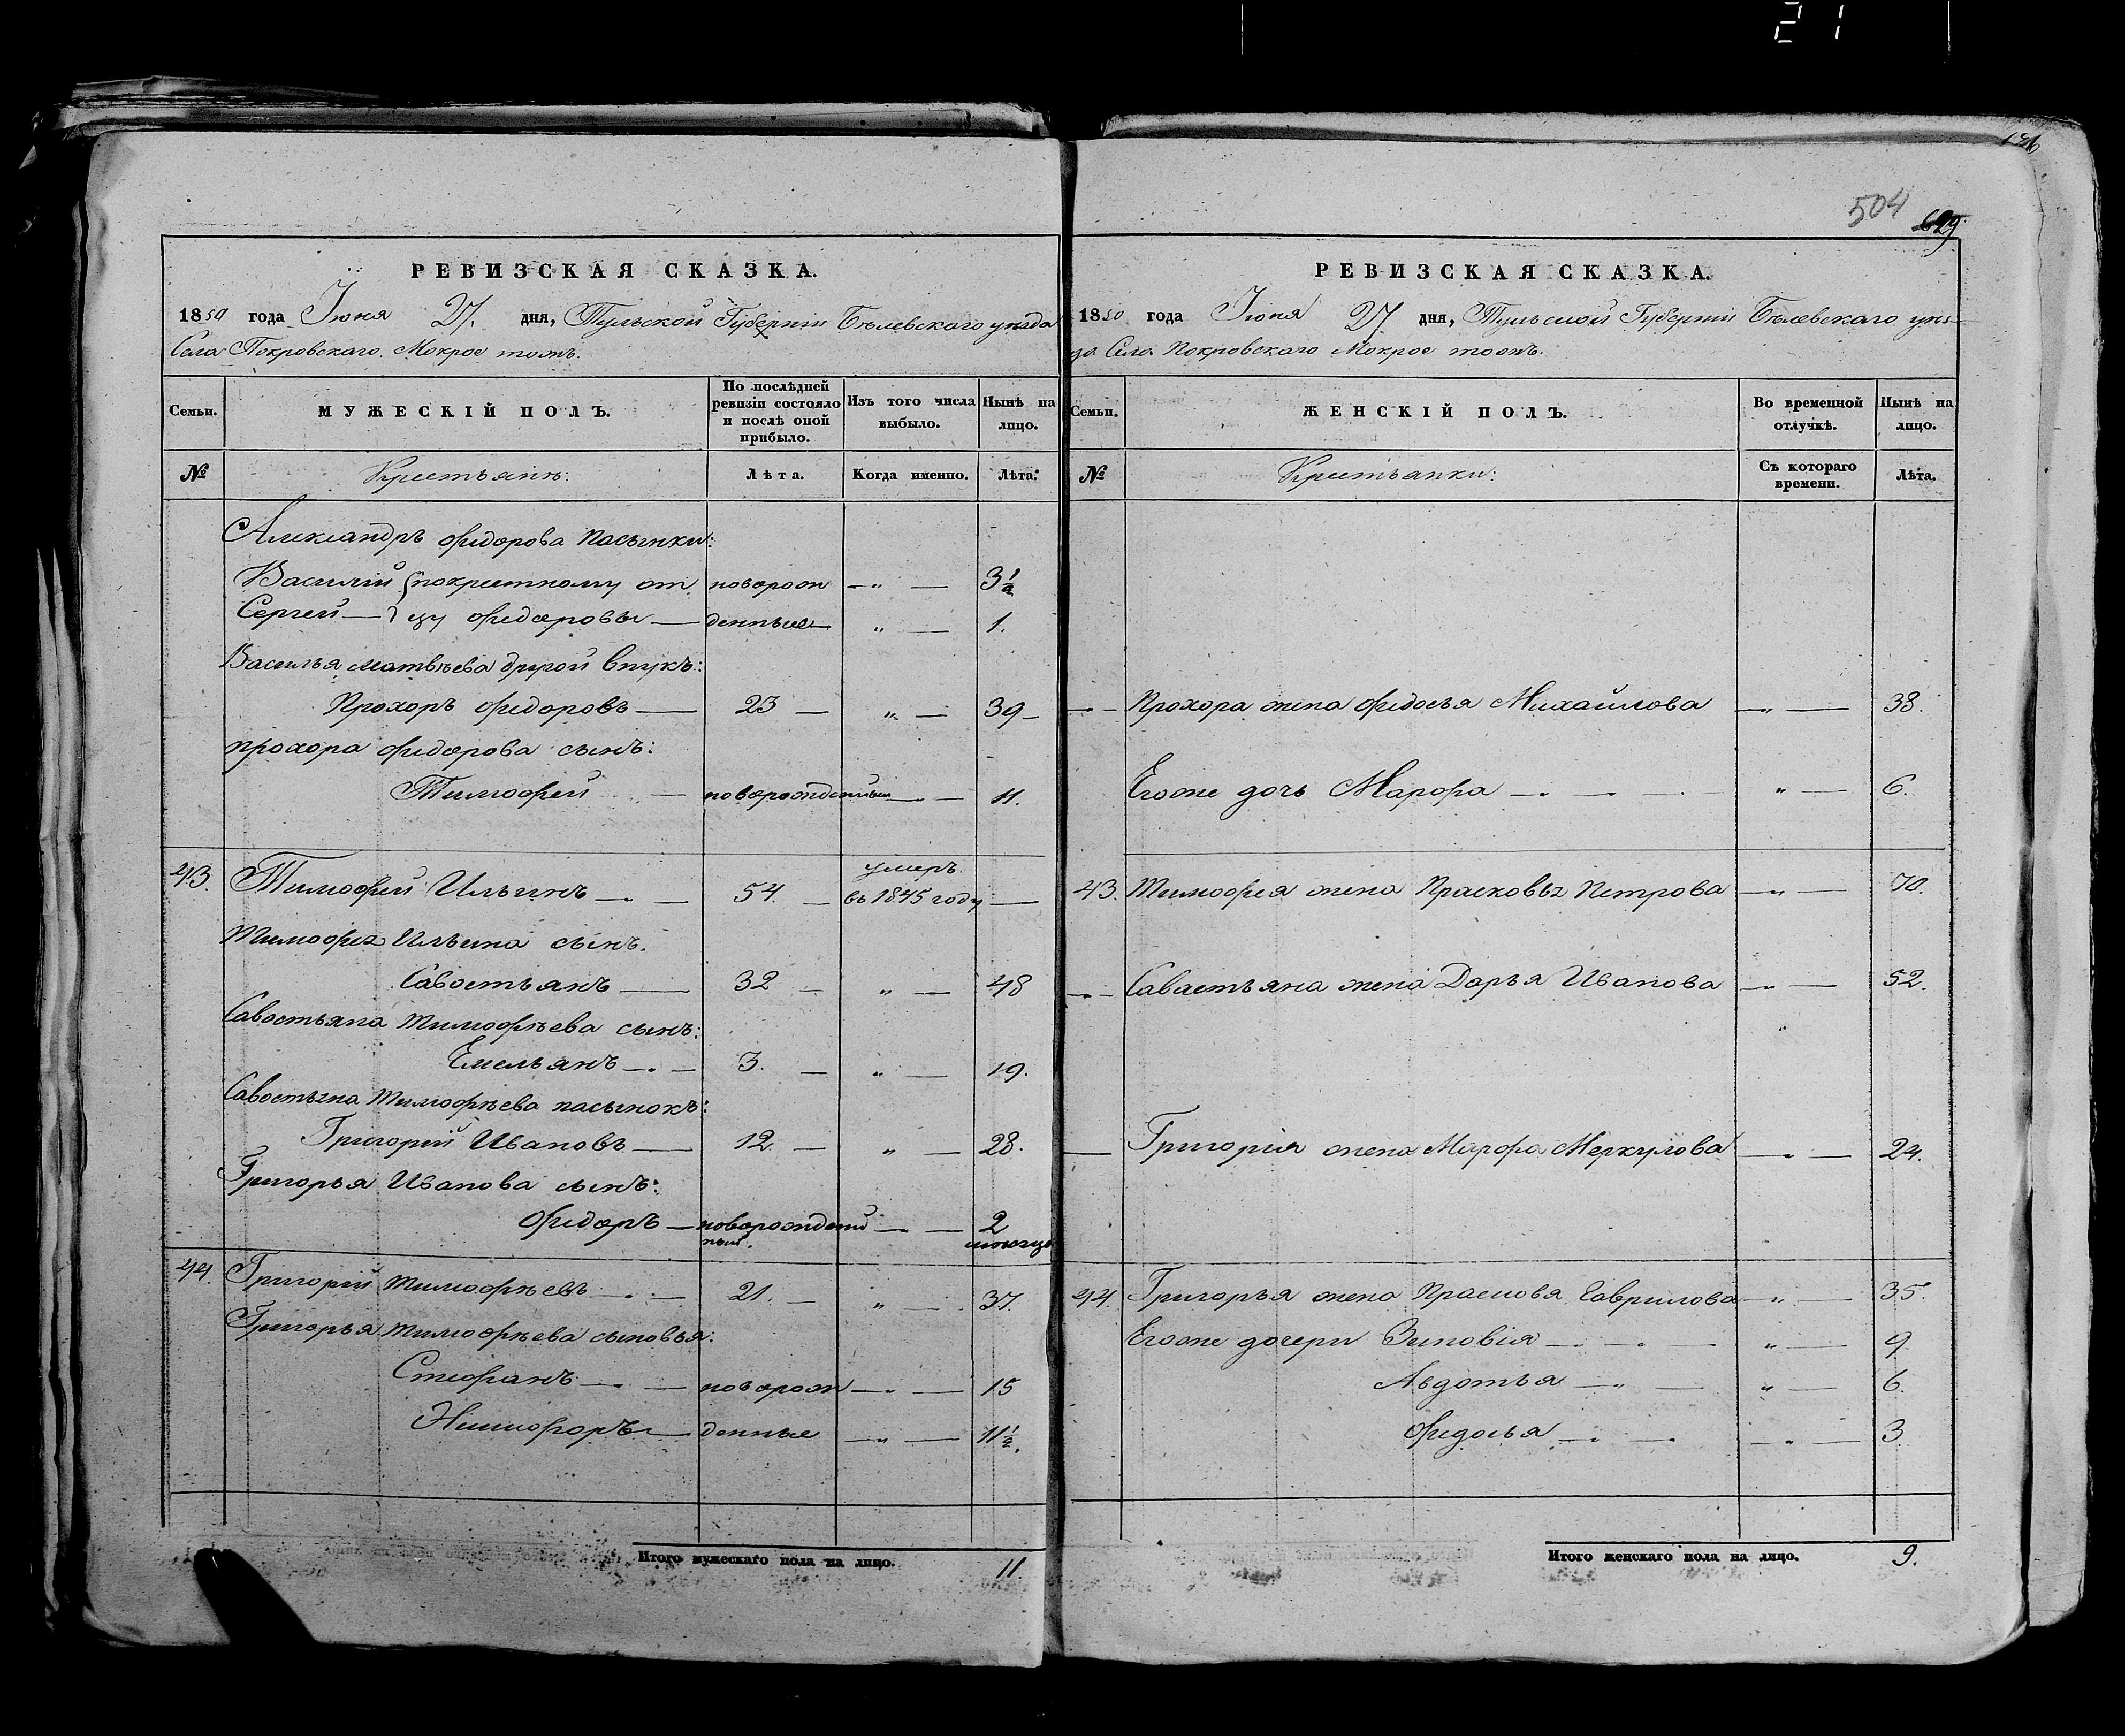 21
136
504
629
РЕВИЗСКАЯ СКАЗКА.
1850 года Іюня 27. дня, Тульской Губерніи Бѣлевскаго уѣзда
Села Покровскаго Мокрое тожъ.
Семьи.
МУЖЕСКІЙ ПОЛЪ.
По послѣдней ревизіи состояло и послѣ оной прибыло.
Изъ того числа выбыло.
Нынѣ на лицо.
№
Крестьянъ:
Лѣта.
Когда именно.
Лѣта.
Александръ Федорова пасынки:
Василій { покрестному от новорож — „ — 3½
Сергей — } цу Федоровы — денные „ — 1.
Василья Матвѣева другой внукъ:
Прохоръ Федоровъ — 23 — „ — 39 —
Прохора Федорова сынъ:
Тимофей — новорожденный — „ — 11.
43. Тимофей Ильинъ — „ — 54. — умеръ
въ 1845 году —
Тимофея Ильина сынъ.
Савостьянъ — 32 — „ — 48
Савостьяна Тимофѣева сынъ:
Емельянъ — „ — 3. — „ — 19.
Савостьяна Тимофѣева пасынокъ:
Григорій Ивановъ — 12 — „ — 28.
Григорья Иванова сынъ:
Федоръ — новорожденный — „ — 2
ный. мѣсяца
44. Григорій Тимофѣевъ — „ — 21. — „ — 37.
Григорья Тимофѣева сыновья:
Стефанъ — „ — новорож — „ — 15
Никифоръ — денные — „ — 11½.
Итого мужескаго пола на лицо. 11
РЕВИЗСКАЯ СКАЗКА.
1850 года Іюня 27 дня, Тульской Губерніи Бѣлевскаго уѣз-
да Села Покровскаго Мокрое тожъ.
Семьи.
ЖЕНСКІЙ ПОЛЪ.
Во временной отлучкѣ.
Нынѣ на лицо.
№
Крестьянки:
Съ котораго времени.
Лѣта.
— „ — Прохора жена Федосья Михайлова — „ — 38.
Егоже дочь Марфа — „ — „ — 6.
43. Тимофея жена Прасковья Петрова — „ — 70.
— „ — Савастьяна жена Дарья Иванова — „ — 52.
„
— Григорія жена Марфа Меркулова — „ — 24.
44. Григорья жена Прасковя Гаврилова — „ — 35.
Егоже дочери Зиновія — „ — „ — 9.
Авдотья — „ — „ — 6.
Федосья — „ — „ — 3.
Итого женскаго пола на лицо. 9.